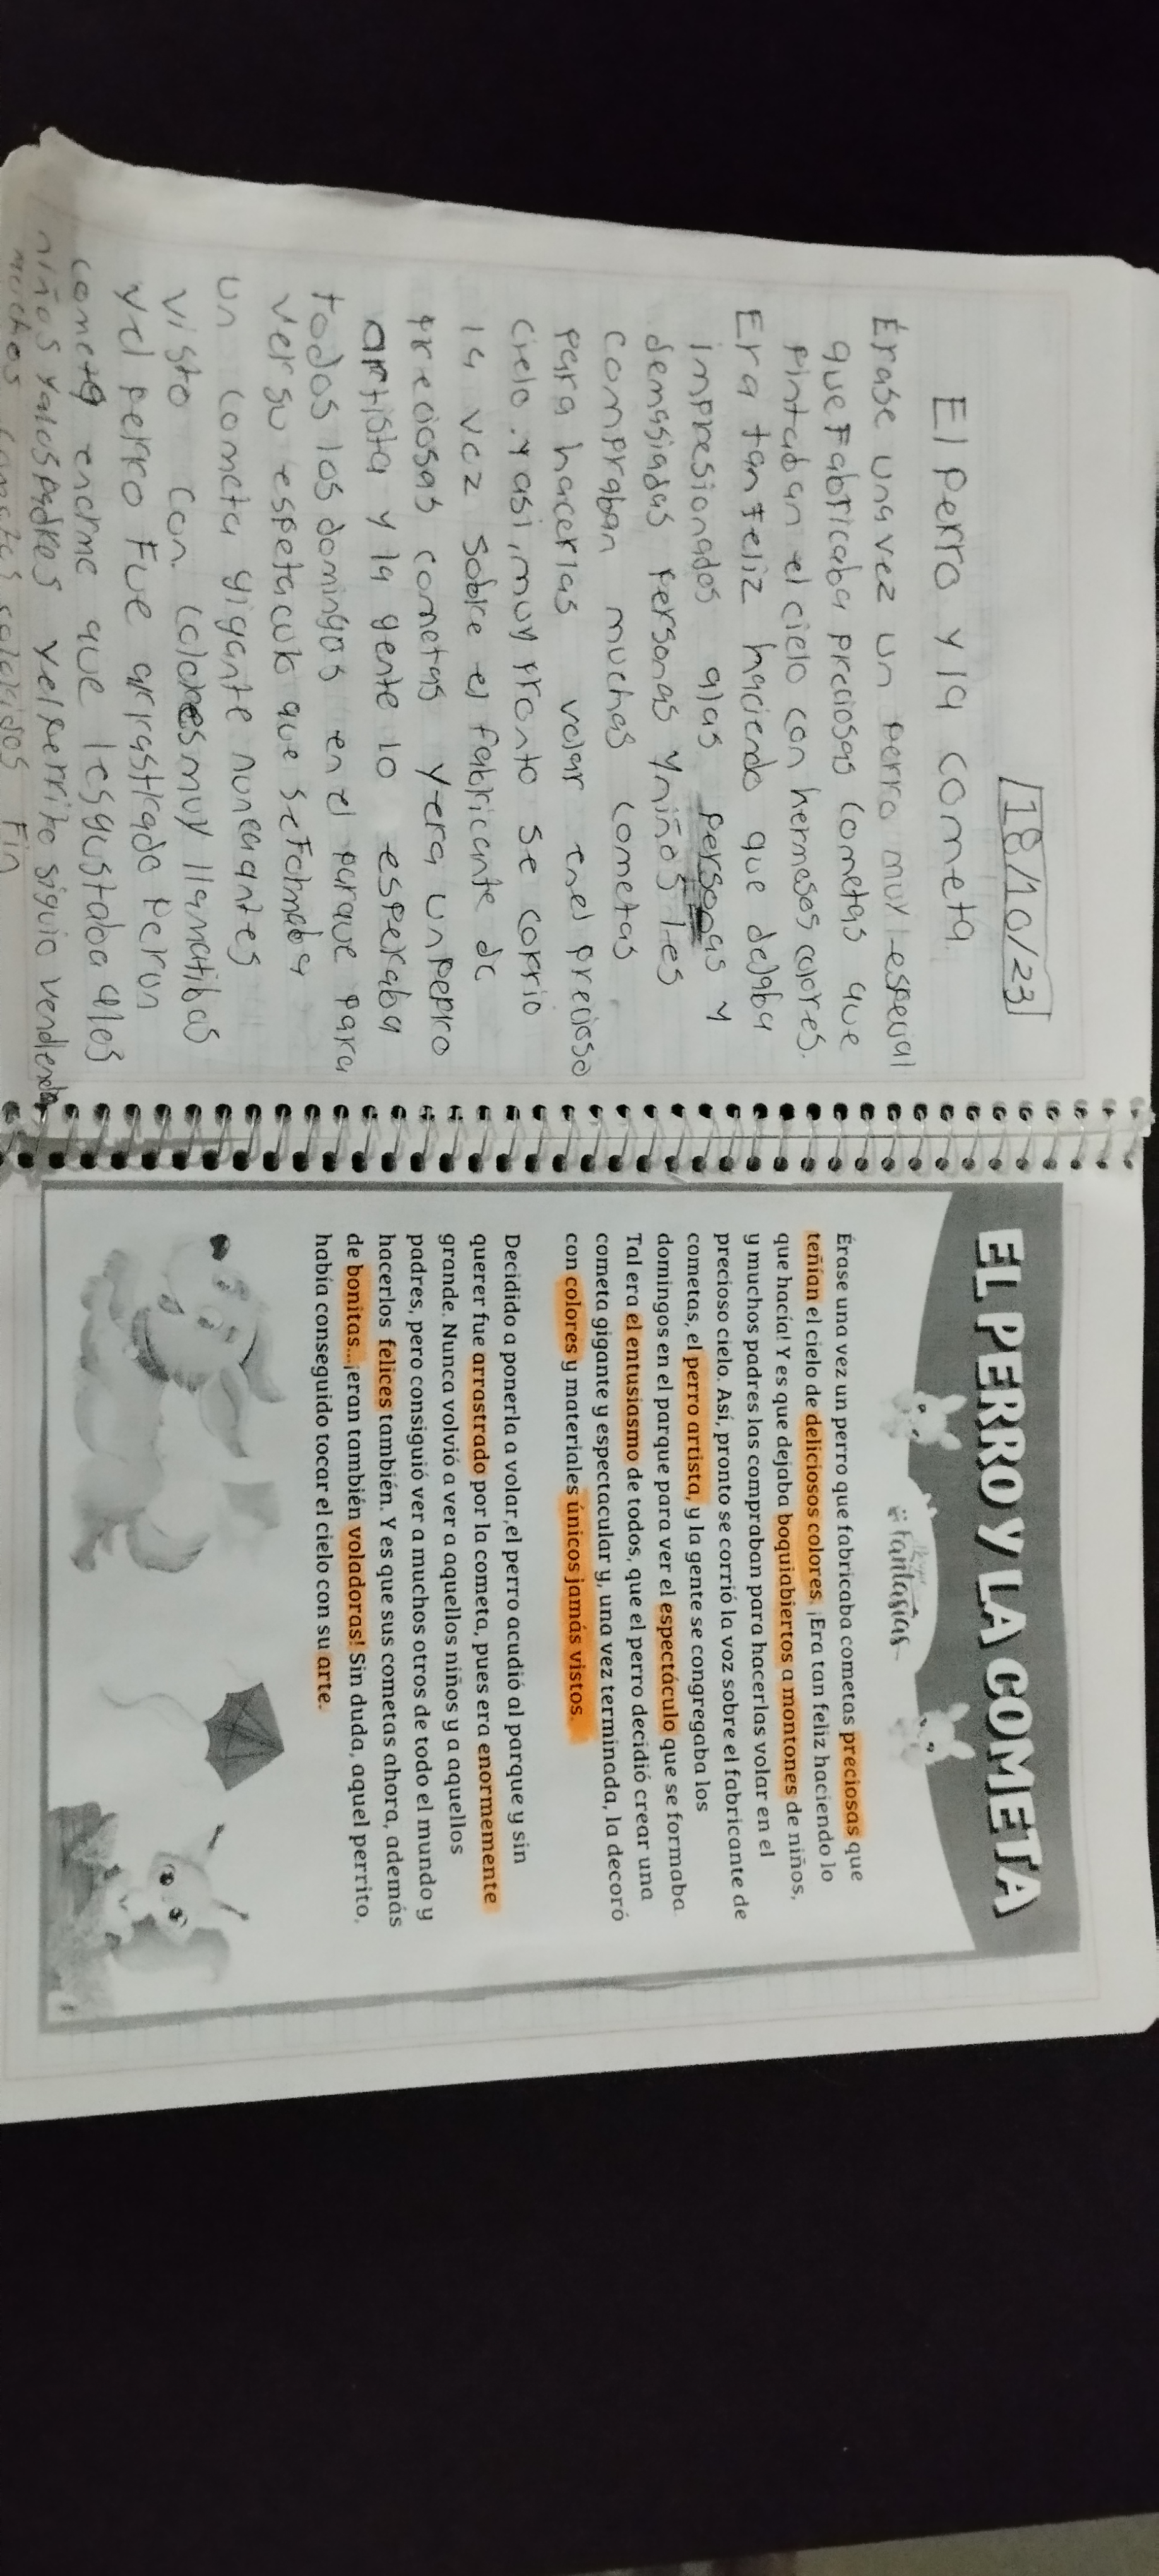 18/10/23
El perro y la cometa
Érase una vez un perro muy especial
que Fabricaba preciosas cometas que
pintadan el cielo con hermosos colores.
Era tan feliz haciendo que dejaba
impresionados alas personas y
demasiadas personas y niños les
compraban muchas cometas
para hacerlas volar enel precioso
cielo. Y asi, muy pronto se corrio
la voz sobre el fabricante de
preciosas cometas y era un perro
artista y la gente lo esperaba
todos los domingos en el parque para
ver su espetaculo que se Formaba
un cometa gigante nunca antes
visto con colores muy llamatibas
y el perro Fue arrastrado Por un
cometa enorme que les gustaba a los
niños y a los padres y el perrito siguio vendiendo
muchos cometas coloridos Fin
EL PERRO Y LA COMETA
Fantasías
Érase una vez un perro que fabricaba cometas preciosas que
teñían el cielo de deliciosos colores. ¡Era tan feliz haciendo lo
que hacía! Y es que dejaba boquiabiertos a montones de niños,
y muchos padres las compraban para hacerlas volar en el
precioso cielo. Así, pronto se corrió la voz sobre el fabricante de
cometas, el perro artista, y la gente se congregaba los
domingos en el parque para ver el espectáculo que se formaba.
Tal era el entusiasmo de todos, que el perro decidió crear una
cometa gigante y espectacular y, una vez terminada, la decoró
con colores y materiales únicos jamás vistos.
Decidido a ponerla a volar,el perro acudió al parque y sin
querer fue arrastrado por la cometa, pues era enormemente
grande. Nunca volvió a ver a aquellos niños y a aquellos
padres, pero consiguió ver a muchos otros de todo el mundo y
hacerlos felices también. Y es que sus cometas ahora, además
de bonitas...¡eran también voladoras! Sin duda, aquel perrito,
había conseguido tocar el cielo con su arte.